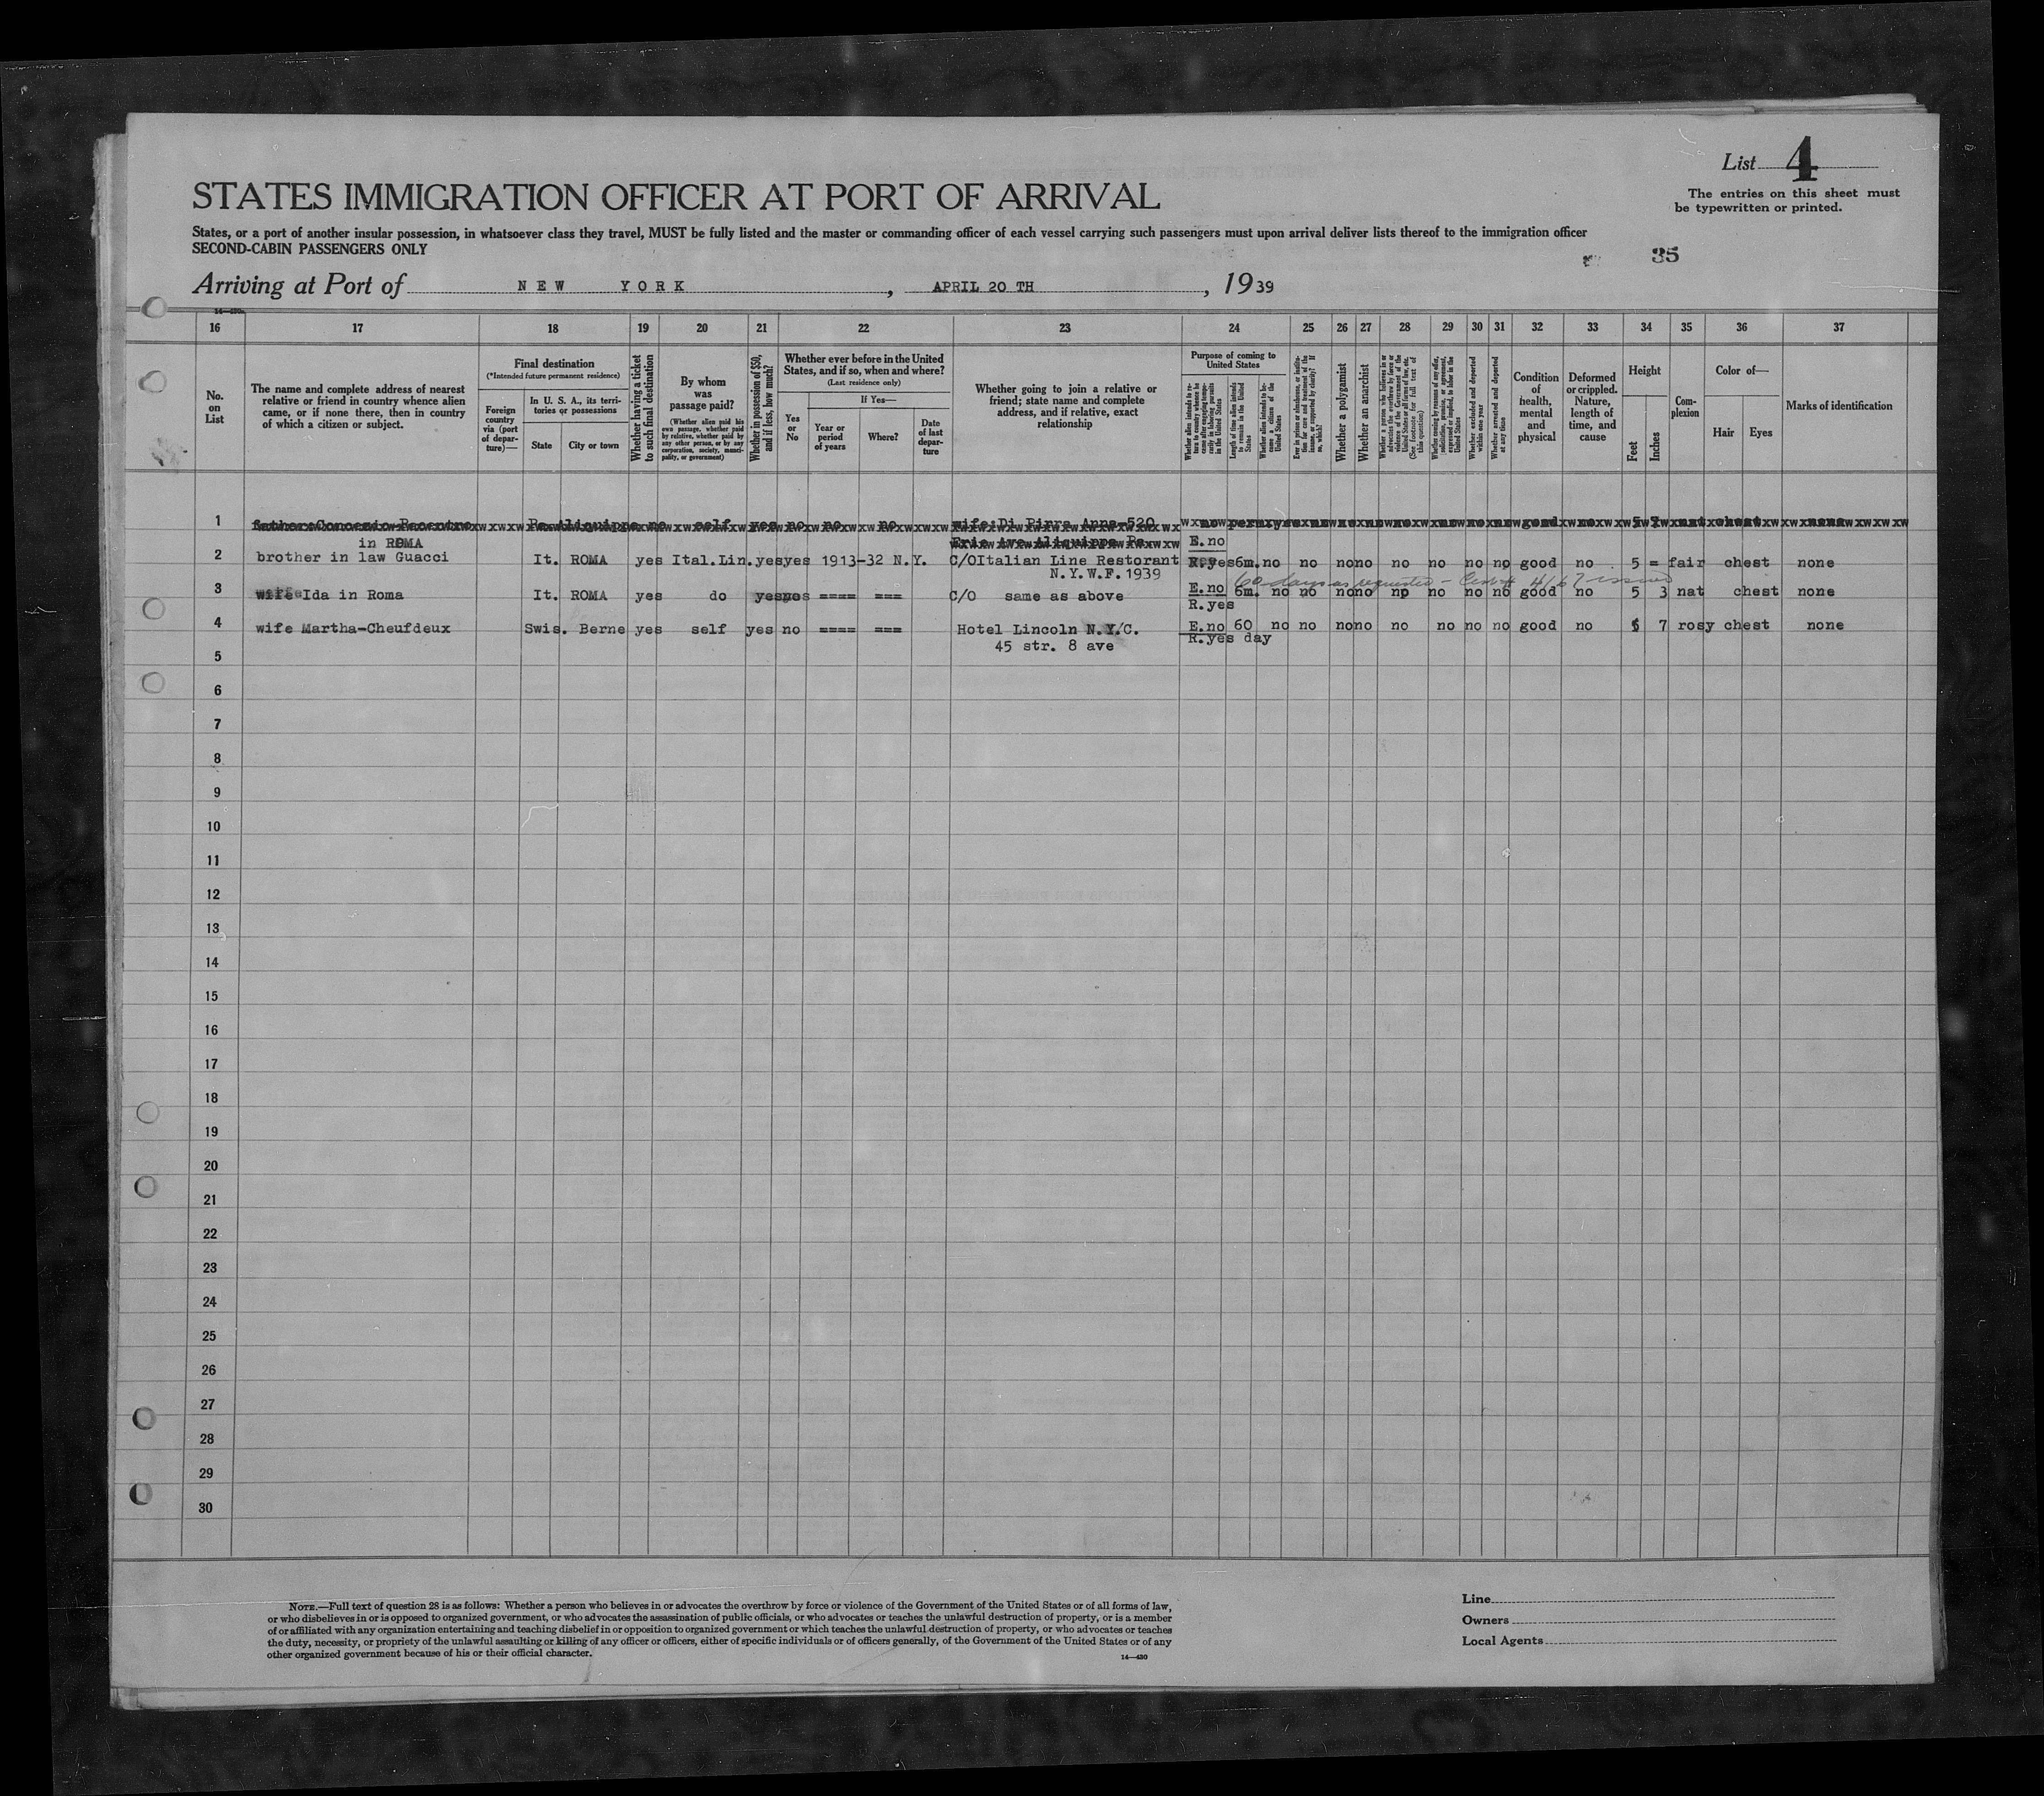 List 4
The entries on this sheet must
be typewritten or printed.
STATES IMMIGRATION OFFICER AT PORT OF ARRIVAL
States, or a port of another insular possession, in whatsoever class they travel, MUST be fully listed and the master or commanding officer of each vessel carrying such passengers must upon arrival deliver lists thereof to the immigration officer
SECOND-CABIN PASSENGERS ONLY
35
Arriving at Port of NEW YORK, APRIL 20 TH, 1939
14-430
16 17 18 19 20 21 22 23 24 25 26 27 28 29 30 31 32 33 34 35 36 37
No. on List
The name and complete address of nearest relative or friend in country whence alien came, or if none there, then in country of which a citizen or subject.
Final destination
(*Intended future permanent residence)
Foreign country via (port of departure)—
In U. S. A., its territories or possessions
State
City or town
Whether having a ticket to such final destination
By whom was passage paid?
(Whether alien paid his own passage, whether paid by relative, whether paid by any other person, or by any corporation, society, municipality, or government)
Whether in possession of $50, and if less, how much?
Whether ever before in the United States, and if so, when and where?
(Last residence only)
Yes or No
If Yes—
Year or period of years
Where?
Date of last departure
Whether going to join a relative or friend; state name and complete address, and if relative, exact relationship
Purpose of coming to United States
Length of time alien intends to remain in the United States
Whether alien intends to become a citizen of the United States
Whether a polygamist
Whether an anarchist
Whether excluded and deported within one year
Whether arrested and deported at any time
Condition of health, mental and physical
Deformed or crippled. Nature, length of time, and cause
Height
Feet
Inches
Complexion
Color of—
Hair
Eyes
Marks of identification
1 Pa. Aliquippa no self yes no no no wife Di Pirro Anna 520 good no 5 7 nat chest none
Erie Ave Aliquippa Pa
in ROMA
E. no
2 brother in law Guacci It. ROMA yes Ital.Lin. yes yes 1913-32 N.Y. C/OItalian Line Restorant R.yes 6m. no no no no no no no no good no 5 = fair chest none
N.Y.W.F. 1939
60 days as requested
3 wife Ida in Roma It. ROMA yes do yes ==== === C/O same as above E.no 6m. no no no no no no no no good no 5 3 nat chest none
R.yes
4 wife Martha-Cheufdeux Swis. Berne yes self yes no ==== === Hotel Lincoln N.Y.C. E.no 60 no no no no no no no no good no 5 7 rosy chest none
45 str. 8 ave R.yes day
5
6
7
8
9
10
11
12
13
14
15
16
17
18
19
20
21
22
23
24
25
26
27
28
29
30
NOTE.—Full text of question 28 is as follows: Whether a person who believes in or advocates the overthrow by force or violence of the Government of the United States or of all forms of law,
or who disbelieves in or is opposed to organized government, or who advocates the assassination of public officials, or who advocates or teaches the unlawful destruction of property, or is a member
of or affiliated with any organization entertaining and teaching disbelief in or opposition to organized government or which teaches the unlawful destruction of property, or who advocates or teaches
the duty, necessity, or propriety of the unlawful assaulting or killing of any officer or officers, either of specific individuals or of officers generally, of the Government of the United States or of any
other organized government because of his or their official character.
14—430
Line
Owners
Local Agents